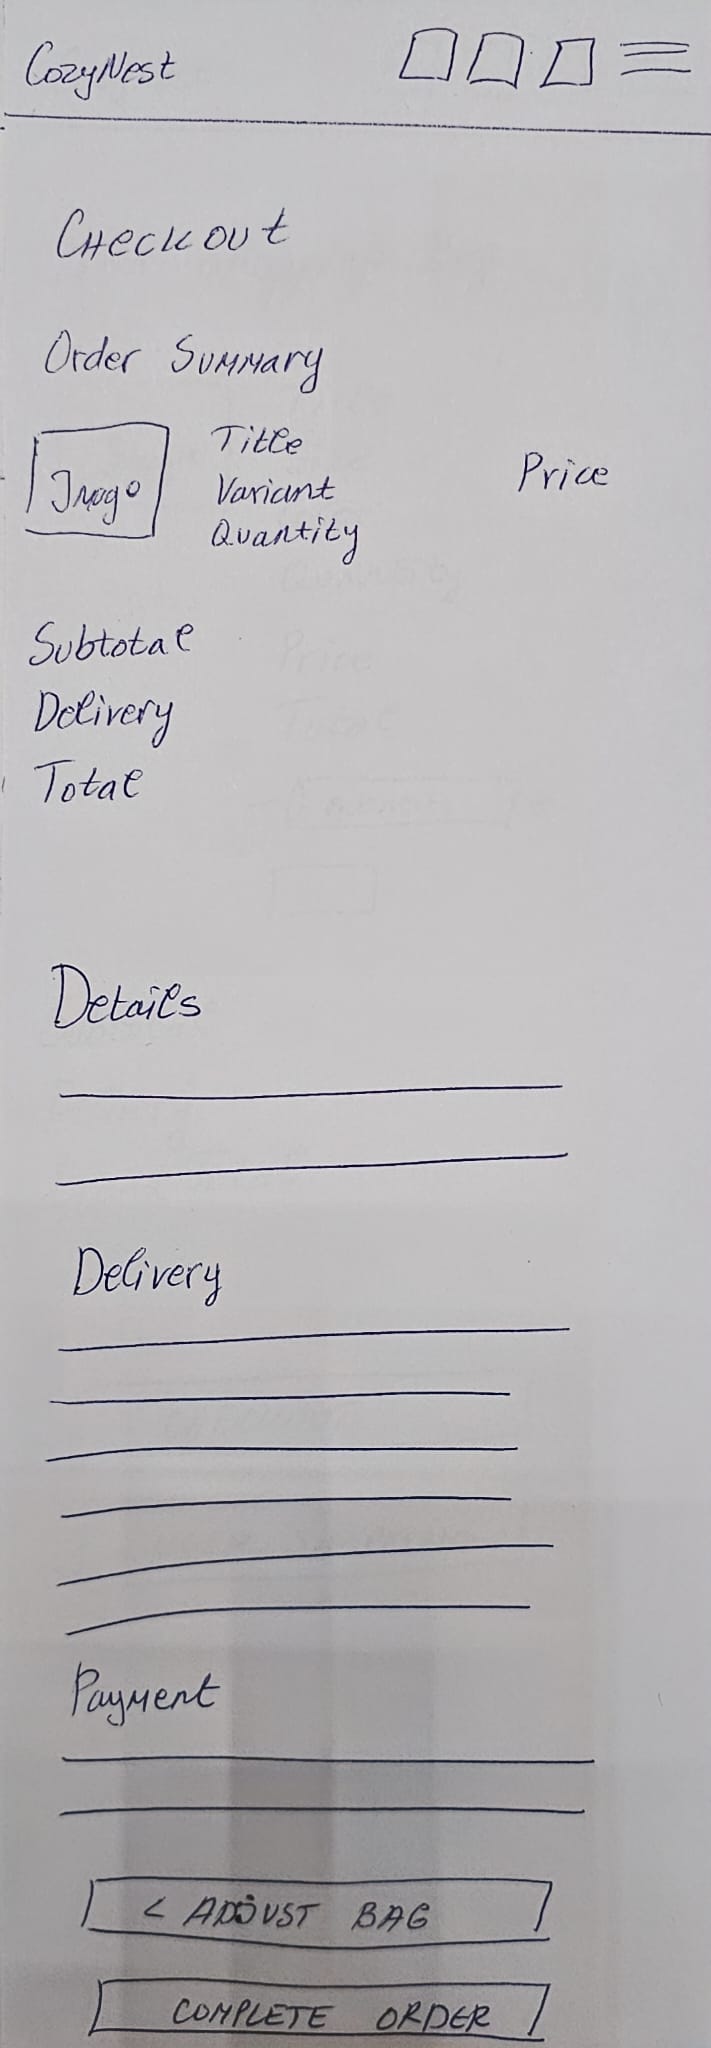 CozyNest
Checkout
Order Summary
Image
Title
Variant
Quantity
Price
Subtotal
Delivery
Total
Details
Delivery
Payment
< ADJUST BAG
COMPLETE ORDER